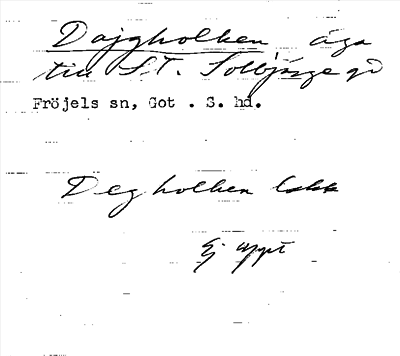 Dajgholken äga
till S.T. Solbjärge gd
Fröjels sn, Got . S. hd.
Degholken
Ej uppt